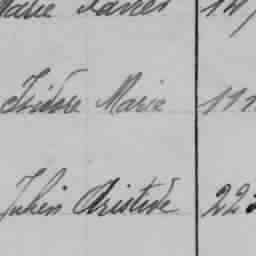 Marie
Isidore Marie 11
Julien Aristide 22